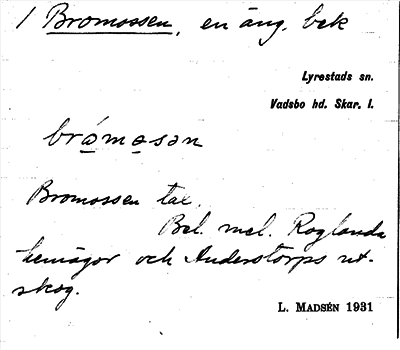 1 Bromossen, en äng, bek
Lyrestads sn.
Vadsbo hd. Skar. l.
brømosən
Bromossen tax.
Bel. mel. Roglanda
hemägor och Anderstorps ut-
skog.
L. MADSÉN 1931